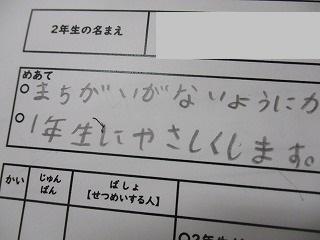 2年生の名まえ
めあて
○まちがいがないようにか
○1年生にやさしくします。
かい
じゅんばん
ばしょ
【せつめいする人】